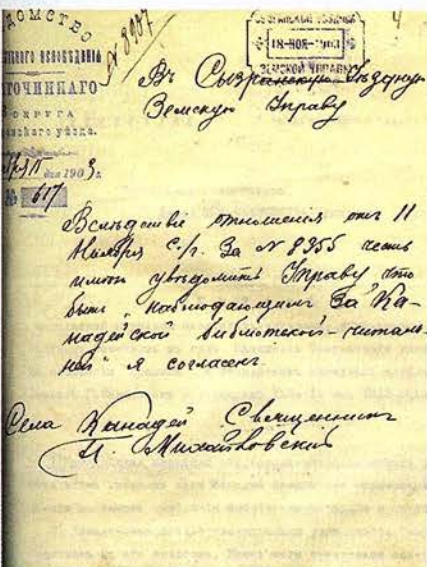 ДОМСТВО
№ 8907
4
18 НОЯ 1903
ЗЕМСКОЙ УПРАВЫ
ТОЧИННАГО
ОКРУГА
уѣзда.
15 дня 1903 г.
№ 617
Въ Сызранскую Уѣздную
Земскую Управу
Вслѣдствіе отношенія отъ 11
Ноября с/г. За № 8355 честь
имѣю увѣдомить Управу что
быть наблюдающимъ за Ка-
надейской библіотекой-читаль-
ней я согласенъ.
Села Канадей Священникъ
П. Михайловскій